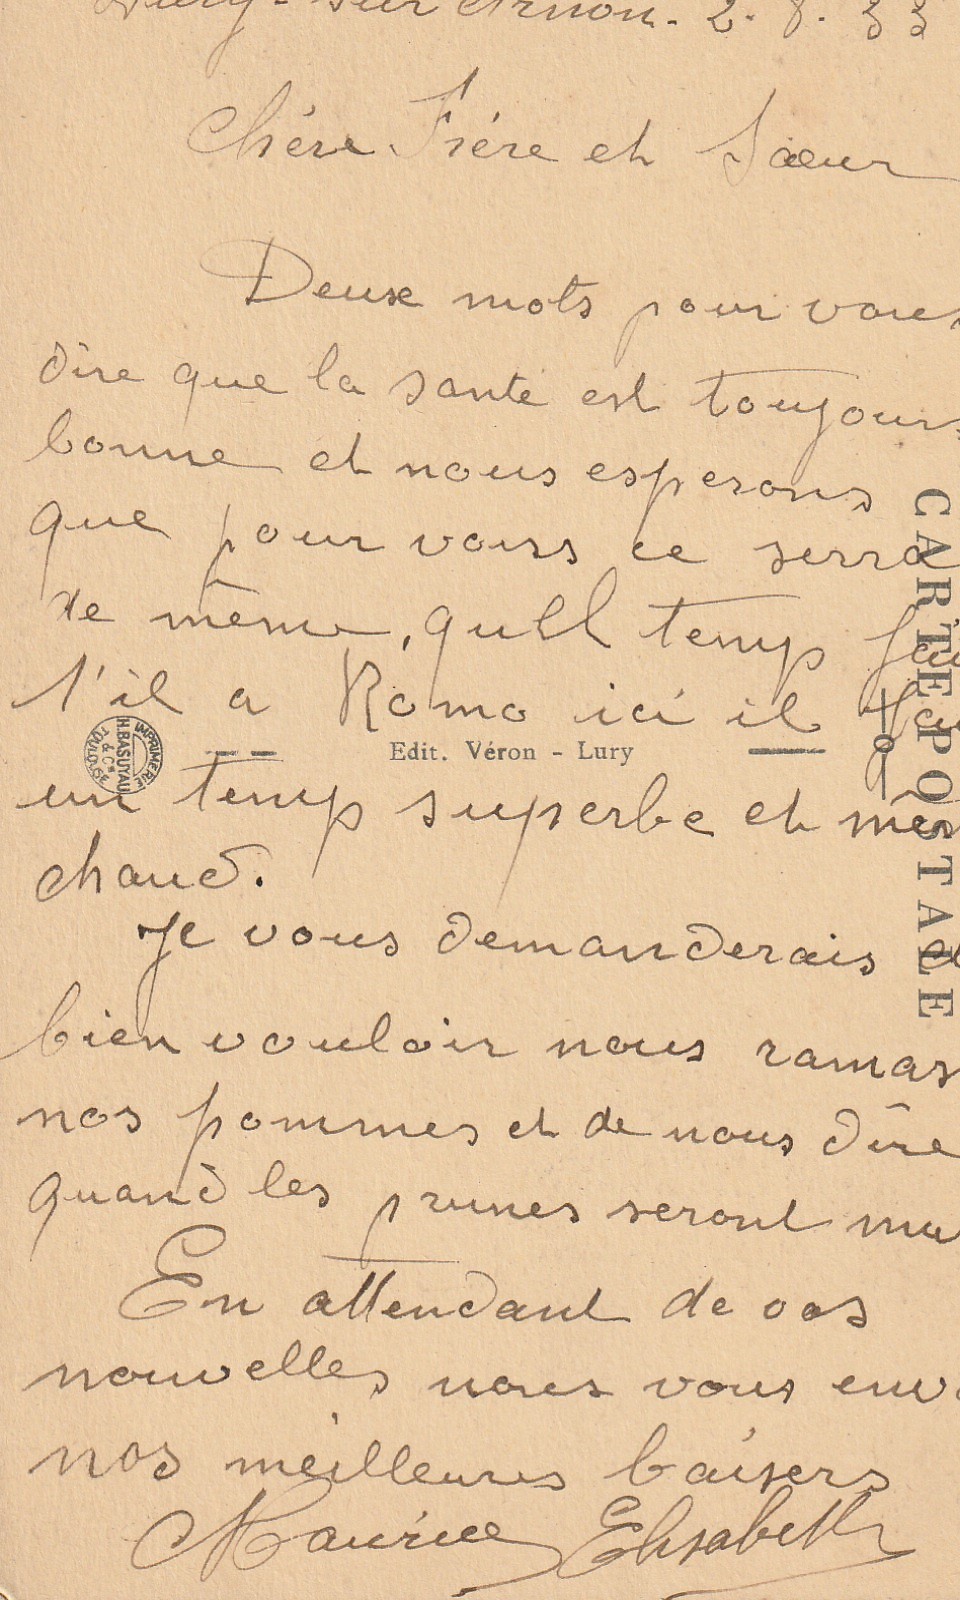 Lury-sur Arnon. 2. 8. 33
Chére Frére et Sœur
Deux mots pour vous
dire que la santé est toujours
bonne et nous esperons
que pour vous ce serra
de même, quell temp fai
t'il a Romo ici il fai
un temp superbe et mêm
chaud.
Je vous demanderais d
bien vouloir nous ramas
nos pommes et de nous dire
quand les prunes seront mu
En attendant de vos
nouvelles nous vous env
nos meilleures baisers
Maurice Elisabeth
CARTE POSTALE
Edit. Véron - Lury
IMPRIMERIE
H. BASUYAU
& Cie
TOULOUSE